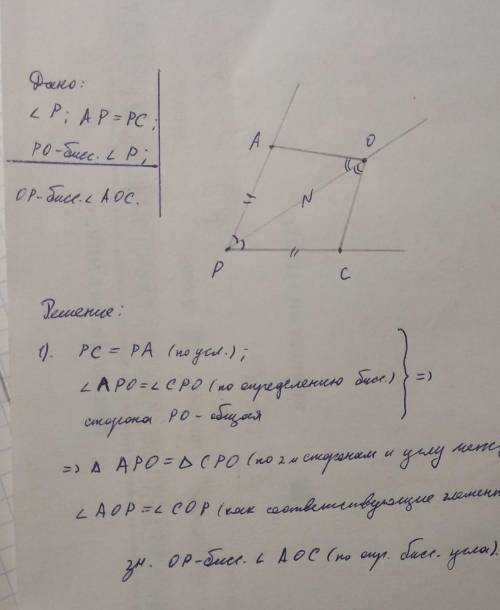 Дано:
∠ P; AP = PC;
PO - бисс. ∠ P;
OP - бисс. ∠ AOC.
A
O
N
P
C
Решение:
1). PC = PA (по усл.);
∠ APO = ∠ CPO (по определению бисс.)
сторона PO - общая
} =>
=> △ APO = △ CPO (по 2м сторонам и углу меж
∠ AOP = ∠ COP (как соответствующие элемент
зн. OP - бисс. ∠ AOC (по опр. бисс. угла).